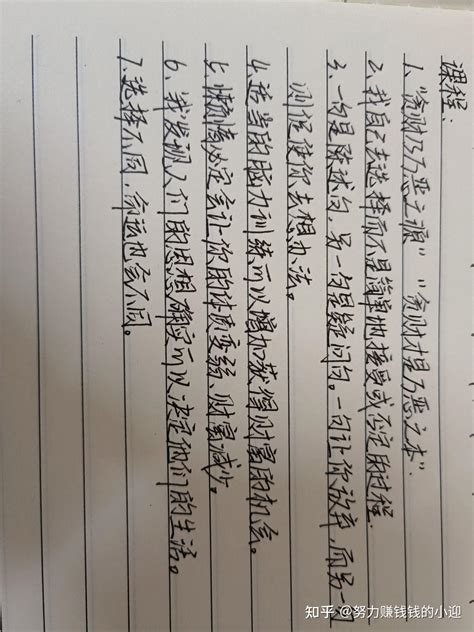 课程：
1. "贪财乃万恶之源" "贫财才是万恶之本".
2. 我自己去选择而不是简单地接受或否定的过程.
3. 一句是陈述句，另一句是疑问句。一句让你放弃，而另一句
则促使你去想办法。
4. 适当的脑力训练可以增加获得财富的机会。
5. 懒惰必定会让你的体质变弱、财富减少。
6. 我发现人们的思想确实可以决定他们的生活。
7. 选择不同，命运也会不同。
知乎 @努力赚钱钱的小迎